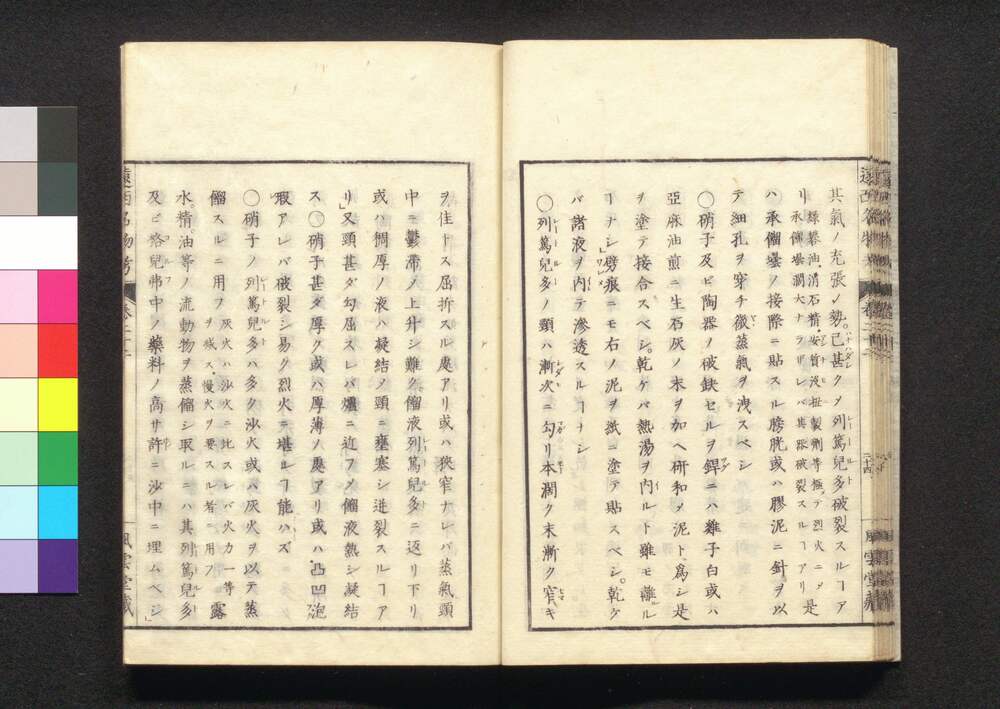 其氣ノ充張ノ勢已甚クメ列篤兒多破裂スルヿア
リ
緑礬油消石精安質没扭製劑等極テ烈火ニメ
承餾壜濶大ナラザレバ其張破裂スルヿアリ
是
ハ承餾壜ノ接際ニ貼スル膀胱或ハ膠泥ニ針ヲ以
テ細孔ヲ穿チ微蒸氣ヲ洩スベシ
〇硝子及ビ陶器ノ破缺セルヲ銲ニハ雞子白或ハ
亞麻油煎ニ生石灰ノ末ヲ加ヘ研和メ泥ト爲シ是
ヲ塗テ接合スベシ乾ケバ熱湯ヲ内ルト雖モ離ル
ヿナシ劈痕ニモ右ノ泥ヲ紙ニ塗テ貼スベシ乾ケ
バ諸液ヲ内テ滲透スルヿナシ
〇列篤兒多ノ頸ハ漸次ニ勾リ本濶ク末漸ク窄キ
二十四
風雲堂藏
ヲ佳トス屈折スル處アリ或ハ狹窄ナレバ蒸氣頸
中ニ鬱滯ノ上升シ難ク餾液列篤兒多ニ返リ下リ
或ハ稠厚ノ液ハ凝結ノ頸ニ壅塞シ迸裂スルヿア
リ又頸甚ダ勾屈スレバ爐ニ近フメ餾液熱シ凝結
ス〇硝子甚ダ厚ク或ハ厚薄ノ處アリ或ハ凸凹泡
瑕アレバ破裂シ易ク烈火ニ堪ルヿ能ハズ
〇硝子ノ列篤兒多ハ多ク沙火或ハ灰火ヲ以テ蒸
餾スルニ用フ
灰火ハ沙火ニ比スレバ火力一等
ヲ減ス慢火ヲ要スル者ニ用フ
露
水精油等ノ流動物ヲ蒸餾シ取ルニハ其列篤兒多
及ビ喀兒弗中ノ藥料ノ高サ許ニ沙中ニ埋ムベシ
遠西名物考
卷二十二
風雲堂藏